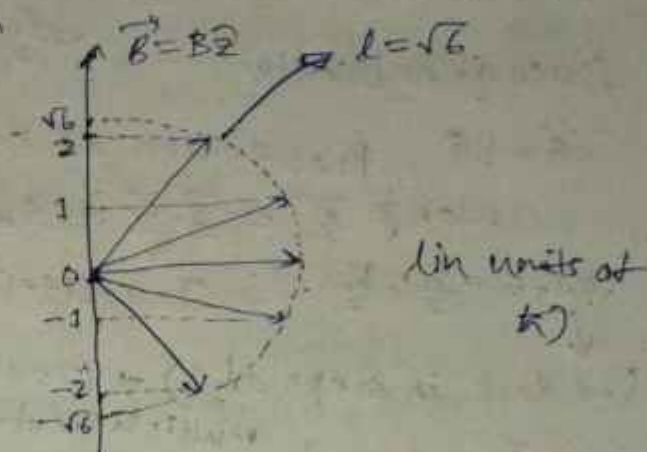 B⃗ = Bẑ
l = √6
√6
2
1
0
-1
-2
-√6
(in units of
ħ)